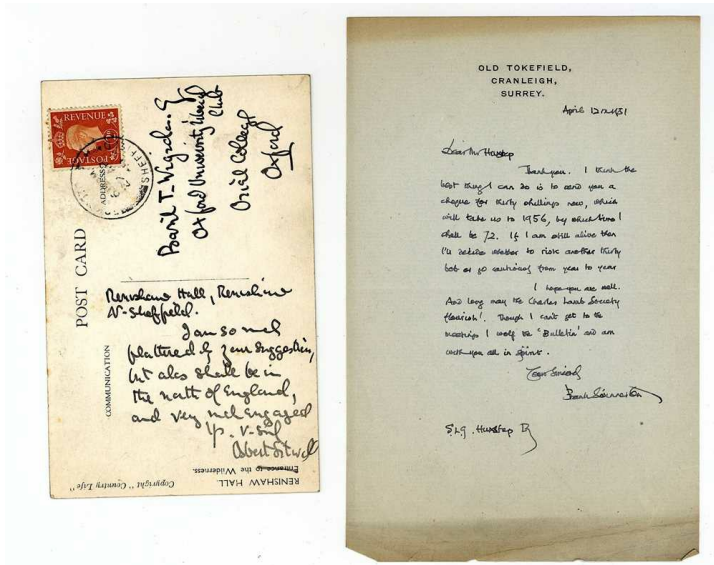 REVENUE
POSTAGE
SHEFFIELD
ADDRESS
POST CARD
COMMUNICATION
Basil T.
Oxford University
Club
Oriel College
Oxford
Renishaw Hall, Renishaw
Nr. Sheffield.
I am so much
flattered by your suggestion,
but alas shall be in
the north of England,
and very much engaged
Yrs. v. sincy
Osbert Sitwell
RENISHAW HALL.
Entrance to the Wilderness.
Copyright "Country Life"
OLD TOKEFIELD,
CRANLEIGH,
SURREY.
April 12
Dear Mr
Thank you. I think the
best thing I can do is to send you a
cheque for thirty shillings now, which
will take us to 1956, by which time I
shall be 72. If I am still alive then
I'll decide whether to risk another thirty
bob or go cautiously from year to year
I hope you are well.
And long may the Charles Lamb Society
flourish! Though I can't get to the
meetings I wolf the 'Bulletin' and am
with you all in spirit.
Yours sincerely
Frank Swinnerton
S.L.G.